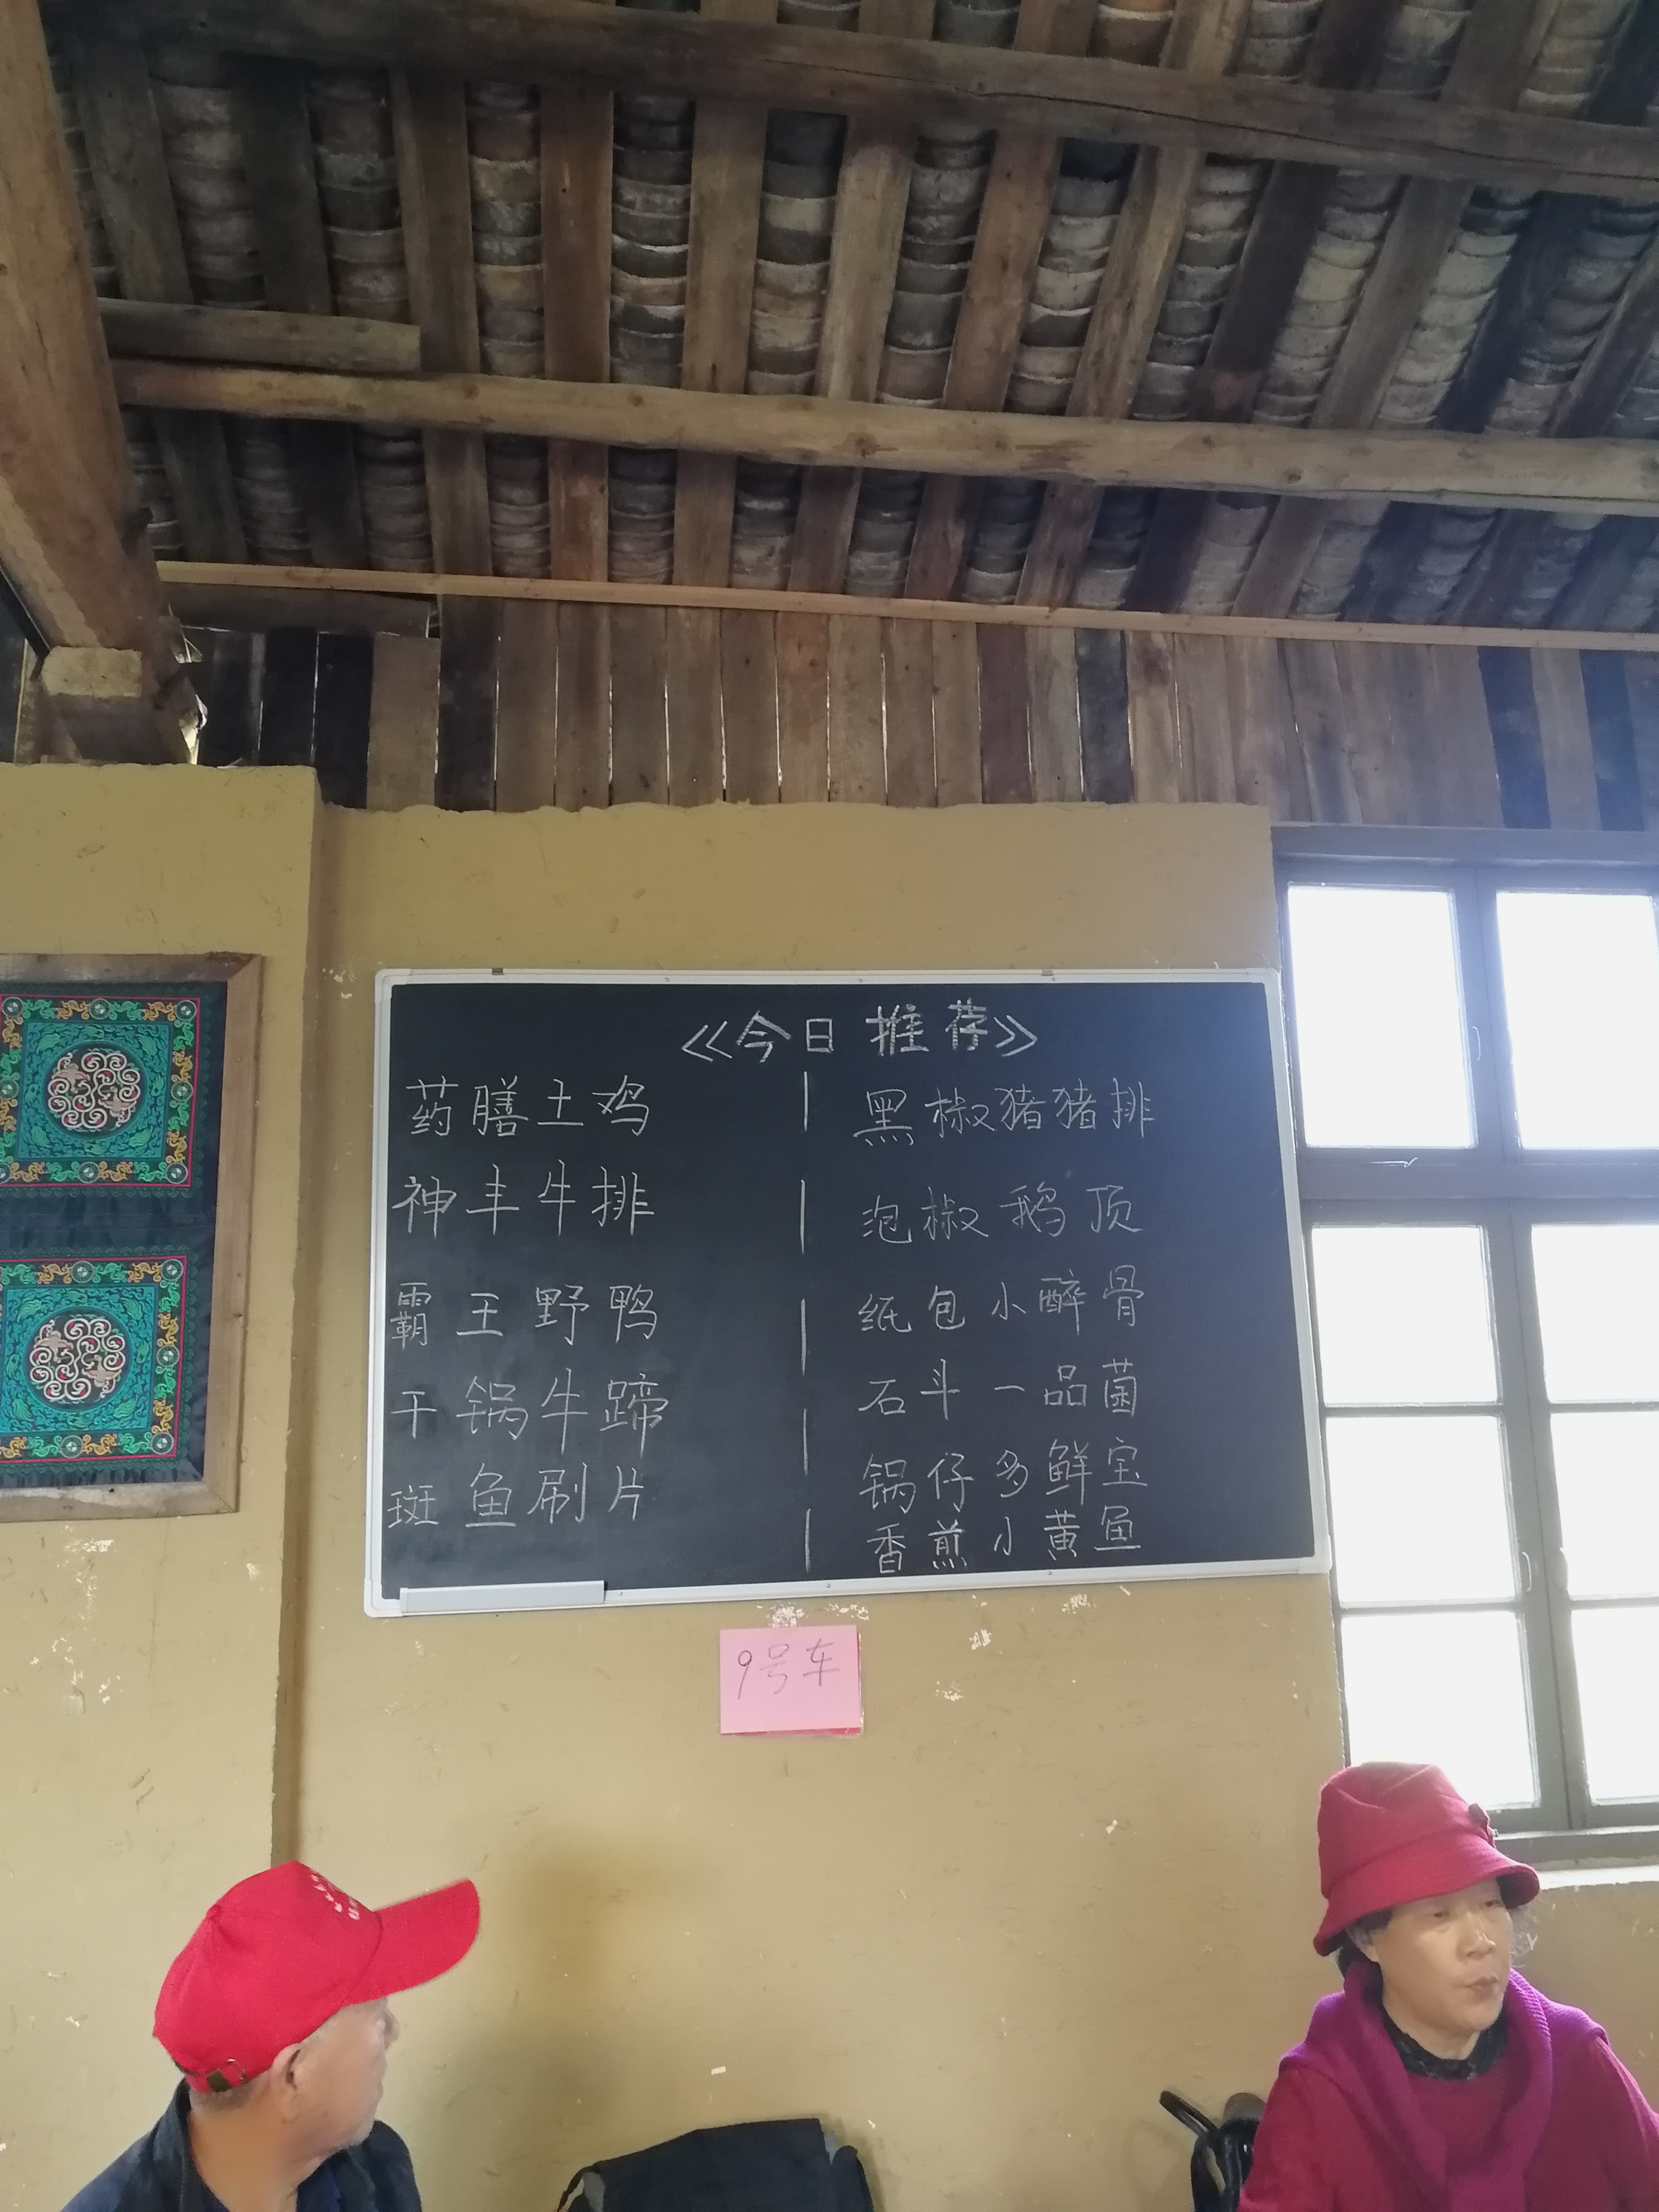 《今日推荐》
药膳土鸡
神丰牛排
霸王野鸭
干锅牛蹄
斑鱼刷片
黑椒猪猪排
泡椒鹅顶
纸包小醉骨
石斗一品菌
锅仔多鲜宝
香煎小黄鱼
9号车